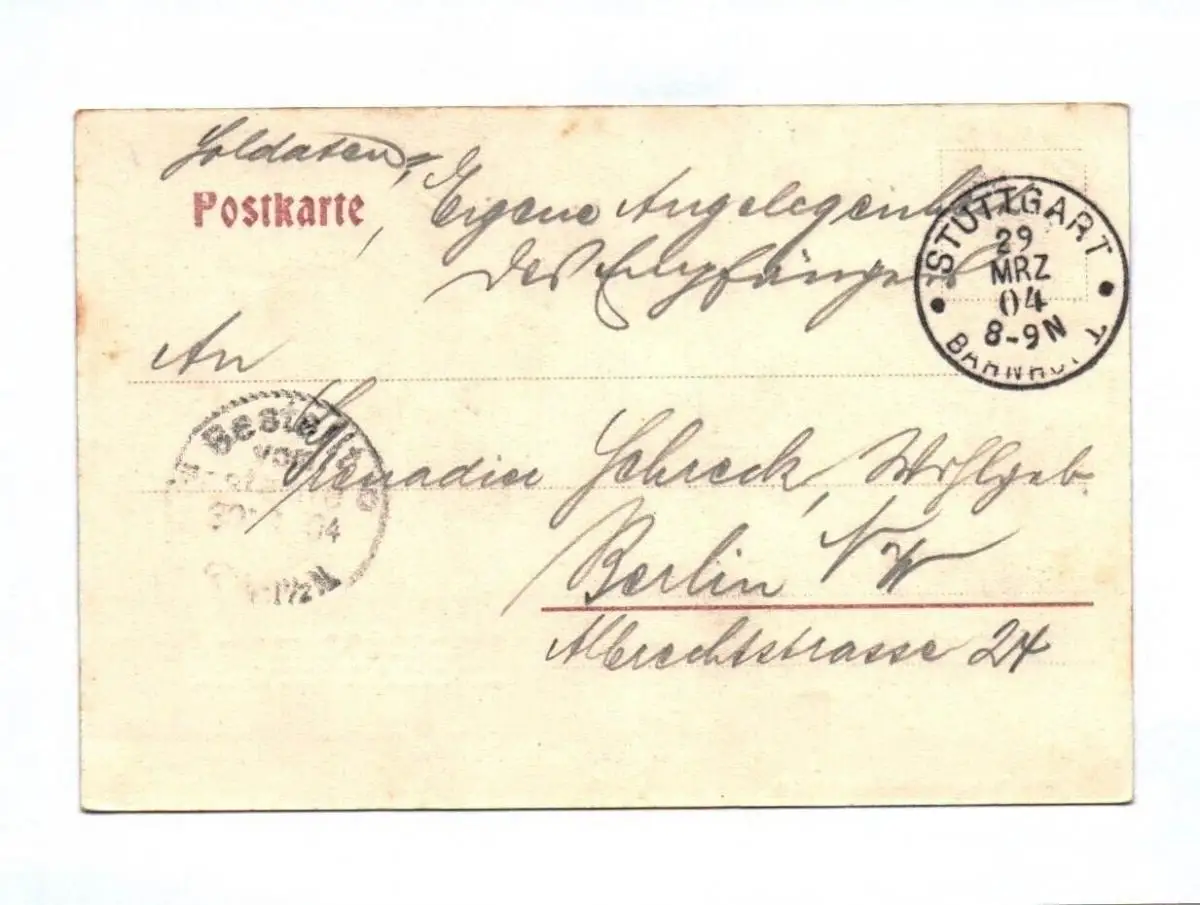 Soldaten=
Postkarte
Eigene Angelegenh
des Empfängers
STUTTGART
29
MRZ
04
8-9N
BAHNHOF
An
Bestellt
vom
04
1½N.
Grenadier Schreck, Wohlgeb.
Berlin NW
Albrechtstrasse 24